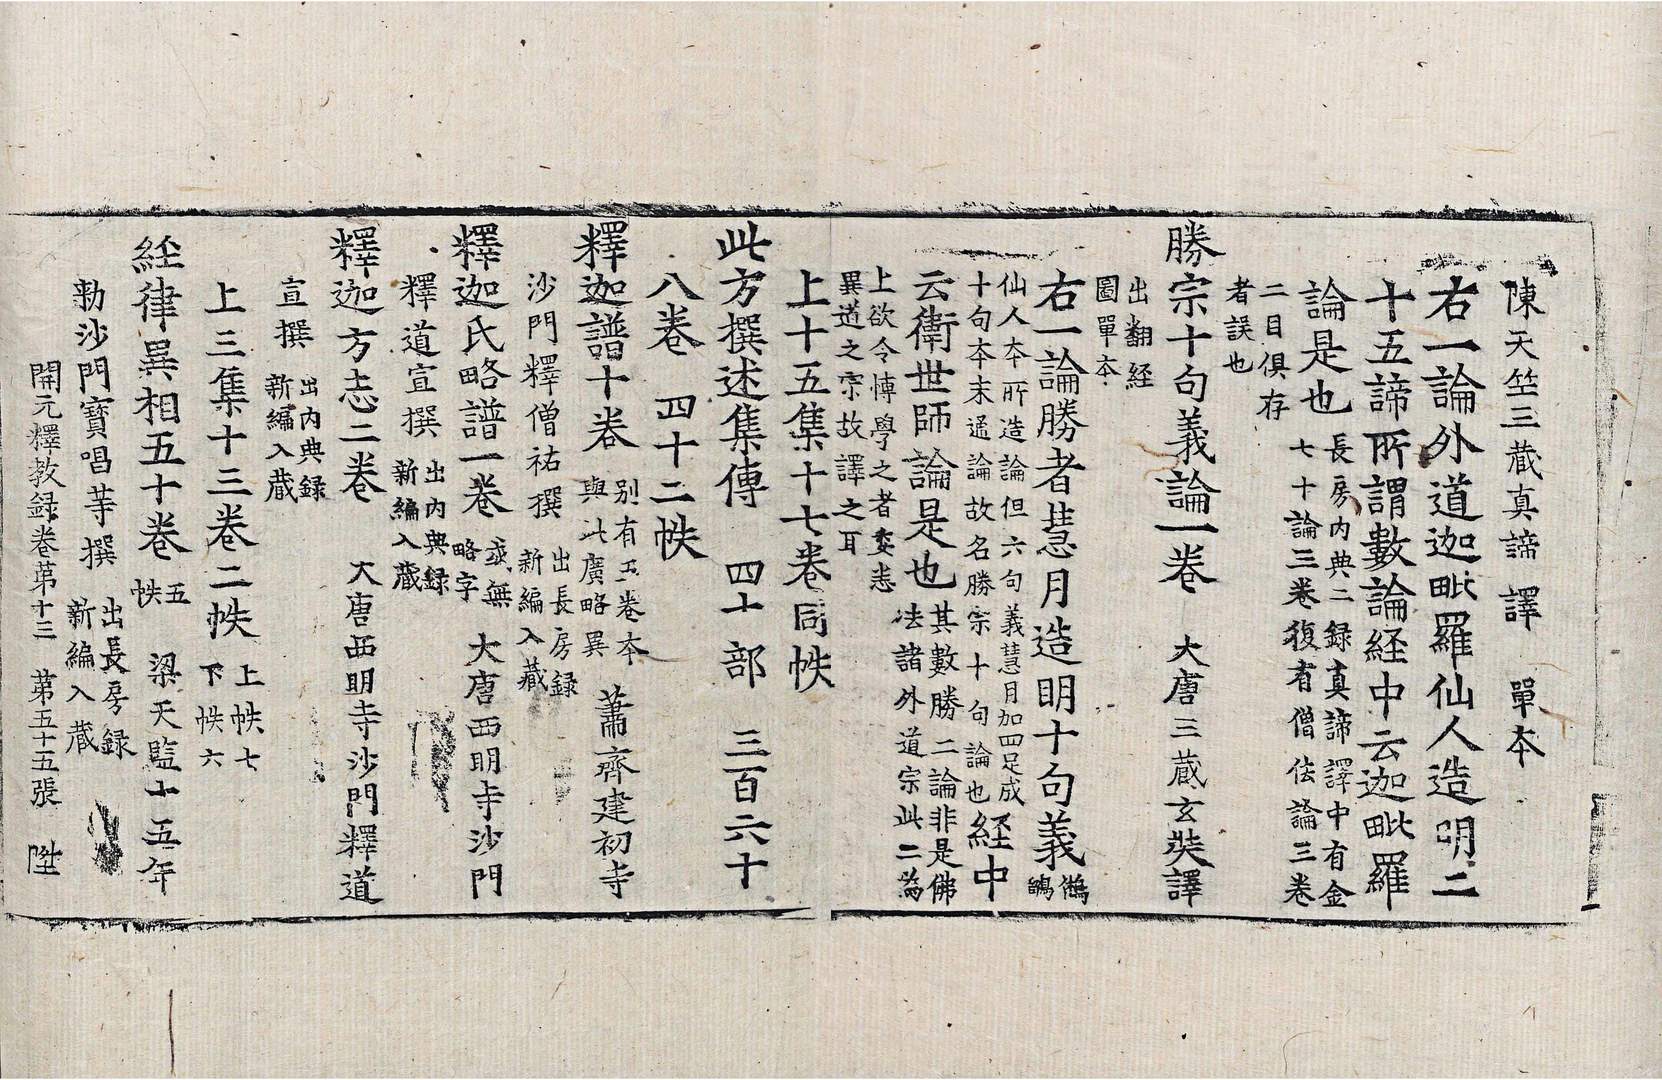 陳天竺三藏真諦譯　單本
右一論外道迦毗羅仙人造明二
十五諦所謂數論経中云迦毗羅
論是也
長房内典二録真諦譯中有金
七十論三卷復有僧佉論三卷
二目俱存
者誤也
勝宗十句義論一卷　大唐三藏玄奘譯
出翻経
圖單夲
右一論勝者慧月造明十句義
鵂
鶹
仙人夲所造論但六句義慧月加四足成
十句夲末通論故名勝宗十句論也
経中
云衛世師論是也
其數勝二論非是佛
法諸外道宗此二為
上欲令博學之者委悉
異道之宗故譯之耳
上十五集十七卷同帙
此方撰述集傳　四十部　三百六十
八卷　四十二帙
釋迦譜十卷
别有五卷夲
與此廣略異
蕭齊建初寺
沙門釋僧祐撰
出長房録
新編入藏
釋迦氏略譜一卷
或無
略字
大唐西明寺沙門
釋道宣撰
出内典録
新編入藏
釋迦方志二卷　大唐西明寺沙門釋道
宣撰
出内典録
新編入藏
上三集十三卷二帙
上帙七
下帙六
経律異相五十卷
五
帙
梁天監十五年
勑沙門寶唱等撰
出長房録
新編入藏
開元釋教録卷苐十三　苐五十五張　陞